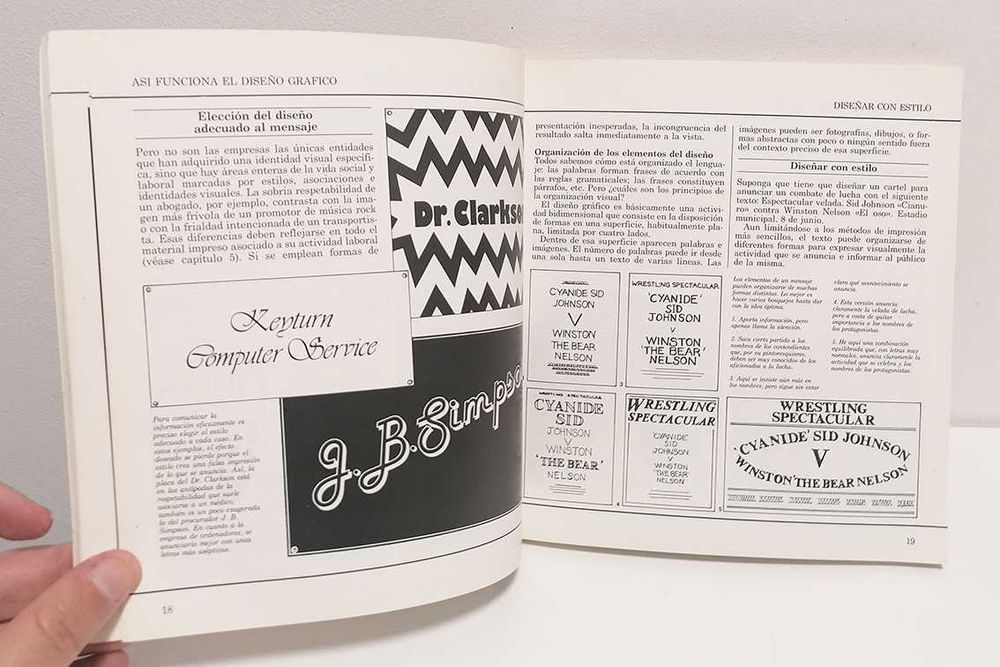 ASI FUNCIONA EL DISEÑO GRAFICO
Elección del diseño
adecuado al mensaje
Pero no son las empresas las únicas entidades
que han adquirido una identidad visual específi-
ca, sino que hay áreas enteras de la vida social y
laboral marcadas por estilos, asociaciones e
identidades visuales. La sobria respetabilidad de
un abogado, por ejemplo, contrasta con la ima-
gen más frívola de un promotor de música rock
o con la frialdad intencionada de un transportis-
ta. Esas diferencias deben reflejarse en todo el
material impreso asociado a su actividad laboral
(véase capítulo 5). Si se emplean formas de
Dr. Clarkso
Keyturn
Computer Service
J.B.Simpso
Para comunicar la
información eficazmente es
preciso elegir el estilo
adecuado a cada caso. En
estos ejemplos, el efecto
deseado se pierde porque el
estilo crea una falsa impresión
de lo que se anuncia. Así, la
placa del Dr. Clarkson está
en las antípodas de la
respetabilidad que suele
asociarse a un médico;
también es un poco exagerada
la del procurador J. B.
Simpson. En cuanto a la
empresa de ordenadores, se
anunciaría mejor con unas
letras más asépticas.
18
DISEÑAR CON ESTILO
presentación inesperadas, la incongruencia del
resultado salta inmediatamente a la vista.
Organización de los elementos del diseño
Todos sabemos cómo está organizado el lengua-
je: las palabras forman frases de acuerdo con
las reglas gramaticales; las frases constituyen
párrafos, etc. Pero ¿cuáles son los principios de
la organización visual?
El diseño gráfico es básicamente una activi-
dad bidimensional que consiste en la disposición
de formas en una superficie, habitualmente pla-
na, limitada por cuatro lados.
Dentro de esa superficie aparecen palabras e
imágenes. El número de palabras puede ir desde
una sola hasta un texto de varias líneas. Las
imágenes pueden ser fotografías, dibujos, o for-
mas abstractas con poco o ningún sentido fuera
del contexto preciso de esa superficie.
Diseñar con estilo
Suponga que tiene que diseñar un cartel para
anunciar un combate de lucha con el siguiente
texto: Espectacular velada. Sid Johnson «Cianu-
ro» contra Winston Nelson «El oso». Estadio
municipal. 8 de junio.
Aun limitándose a los métodos de impresión
más sencillos, el texto puede organizarse de
diferentes formas para expresar visualmente la
actividad que se anuncia e informar al público
de la misma.
Los elementos de un mensaje
pueden organizarse de muchas
formas distintas. Lo mejor es
hacer varios bosquejos hasta dar
con la idea óptima.
1. Aporta información, pero
apenas llama la atención.
2. Saca cierto partido a los
nombres de los contendientes
que, por su pintoresquismo,
deben ser muy conocidos de los
aficionados a la lucha.
3. Aquí se insiste aún más en
los nombres, pero sigue sin estar
claro qué acontecimiento se
anuncia.
4. Esta versión anuncia
claramente la velada de lucha,
pero a costa de quitar
importancia a los nombres de
los protagonistas.
5. He aquí una combinación
equilibrada que, con letras muy
normales, anuncia claramente la
actividad que se celebra y los
nombres de los protagonistas.
CYANIDE SID
JOHNSON
V
WINSTON
THE BEAR
NELSON
WRESTLING SPECTACULAR
'CYANIDE'
SID
JOHNSON
v
WINSTON
'THE BEAR'
NELSON
3
WRESTLING SPECTACULAR
CYANIDE
SID
JOHNSON
V
WINSTON
'THE BEAR'
NELSON
4
WRESTLING
SPECTACULAR
CYANIDE
SID
JOHNSON
V
WINSTON
THE BEAR
NELSON
5
WRESTLING
SPECTACULAR
'CYANIDE' SID JOHNSON
V
WINSTON 'THE BEAR' NELSON
19